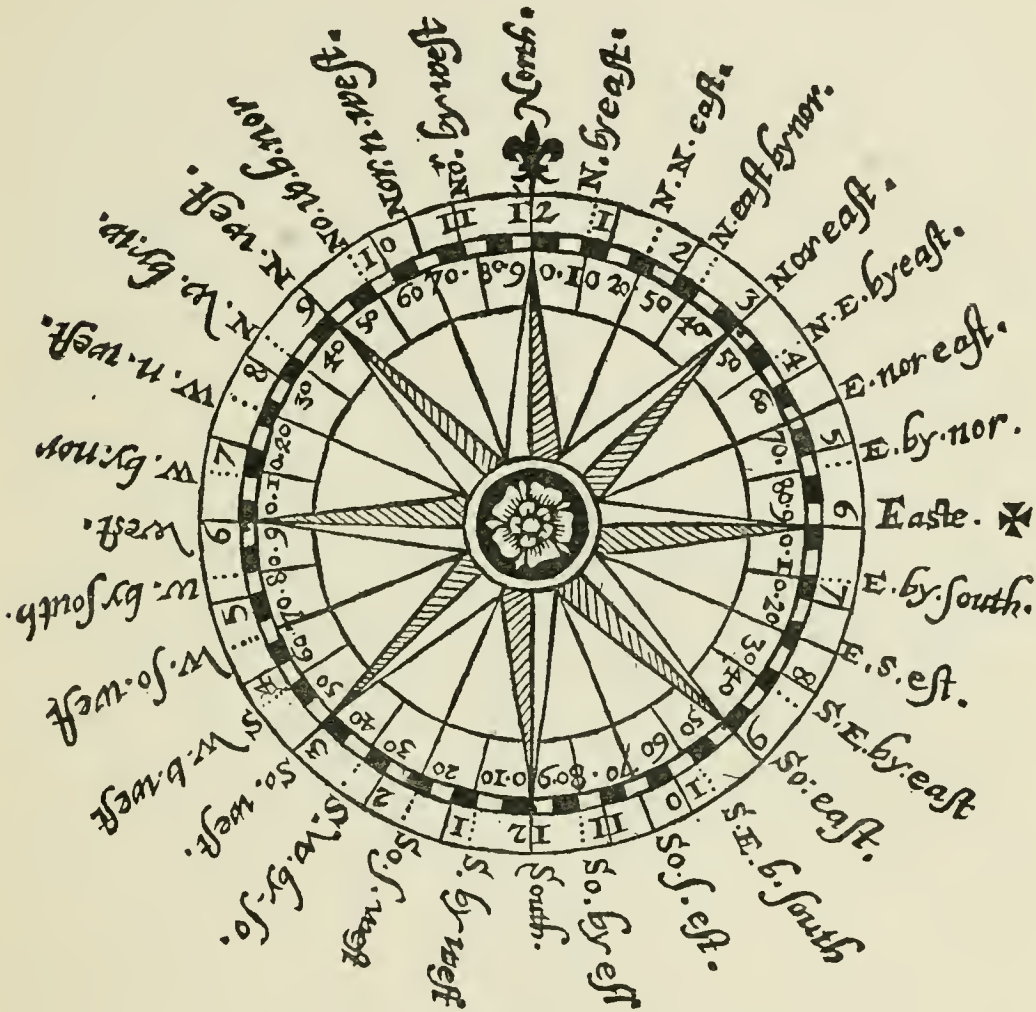 North.
N. by eaſt.
N. N. eaſt.
N. eaſt by nor.
Nor eaſt.
N. E. by eaſt.
E. nor eaſt.
E. by. nor.
Easte.
E. by. ſouth.
E. s. eſt.
S. E. by. eaſt
So: eaſt.
S. E. b. ſouth
So. ſ. eſt.
So. by eſt
South.
S. by weſt
So. ſ. weſt
S. W. by. ſo.
So. weſt.
S. W. b. weſt
W. ſo. weſt
w. by ſouth.
weſt.
w. by. nor
W. n. weſt.
N. w. by. w.
N. weſt.
No. w. b. nor
Nor. n. weſt.
No. by
12 1 2 3 4 5 6 7 8 9 10 11 12 1 2 3 4 5 6 7 8 9 10 11
0.10 20. 50 40 50 60 70. 80. 90
0.10.20 30 40 50 60 70. 80. 90
0.10 20 30 40 50 60 70. 80. 90
0.10.20 30 40 50 60 70. 80. 90